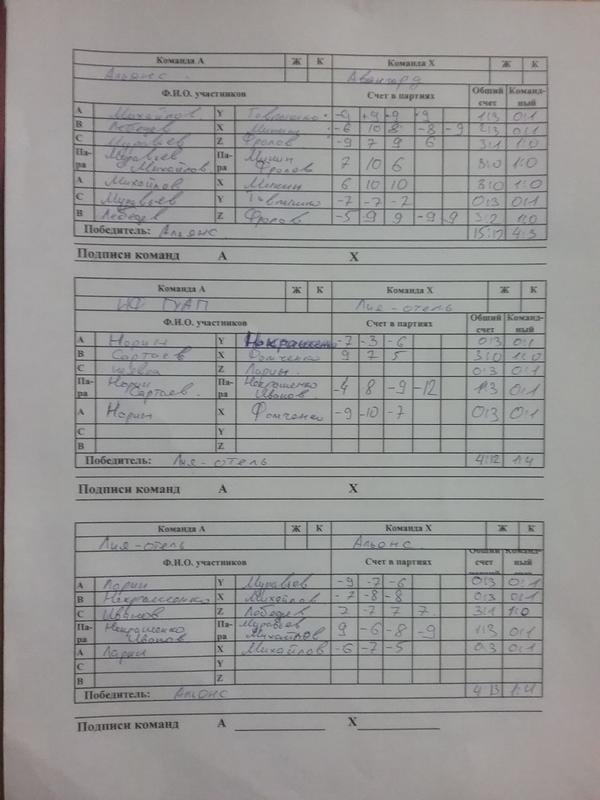 Команда А Ж К Команда X Ж К
Альянс. Авангард
Ф.И.О. участников Счет в партиях Общий счет Командный
А Михайлов Y -9 +9 -9 -9 1:3 0:1
В Лебедев X Минин -6 10 8 -8 -9 2:3 0:1
С Муравьев Z Фролов -9 7 9 6 3:1 1:0
Пара Муравьев Михайлов Пара Минин Фролов 7 10 6 3:0 1:0
А Михайлов X Минин 6 10 10 3:0 1:0
С Муравьев Y -7 -7 -2 0:3 0:1
В Лебедев Z Фролов -5 9 9 -9 9 3:2 1:0
Победитель: Альянс. 15:12 4:3
Подписи команд А X
Команда А Ж К Команда X Ж К
ИФ ГУАП Лия-отель
Ф.И.О. участников Счет в партиях Общий счет Командный
А Норин Y Некрашенко -7 -3 -6 0:3 0:1
В Сартаев X Фомченко 9 7 5 3:0 1:0
С Z Ларин. 0:3 0:1
Пара Норин Сартаев Пара Некрашенко Иванов -4 8 -9 -12 1:3 0:1
А Норин X Фомченко -9 -10 -7 0:3 0:1
С Y
В Z
Победитель: Лия-отель 4:12 1:4
Подписи команд А X
Команда А Ж К Команда X Ж К
Лия-отель Альянс
Ф.И.О. участников Счет в партиях Общий счет
А Ларин Y Муравьев -9 -7 -6 0:3 0:1
В Некрашенко X Михайлов -7 -8 -8 0:3 0:1
С Иванов Z Лебедев 2 -7 7 7 3:1 1:0
Пара Некрашенко Иванов Пара Муравьев Михайлов 9 -6 -8 -9 1:3 0:1
А Ларин X Михайлов -6 -7 -5 0:3 0:1
С Y
В Z
Победитель: Альянс 4:13 1:4
Подписи команд А X